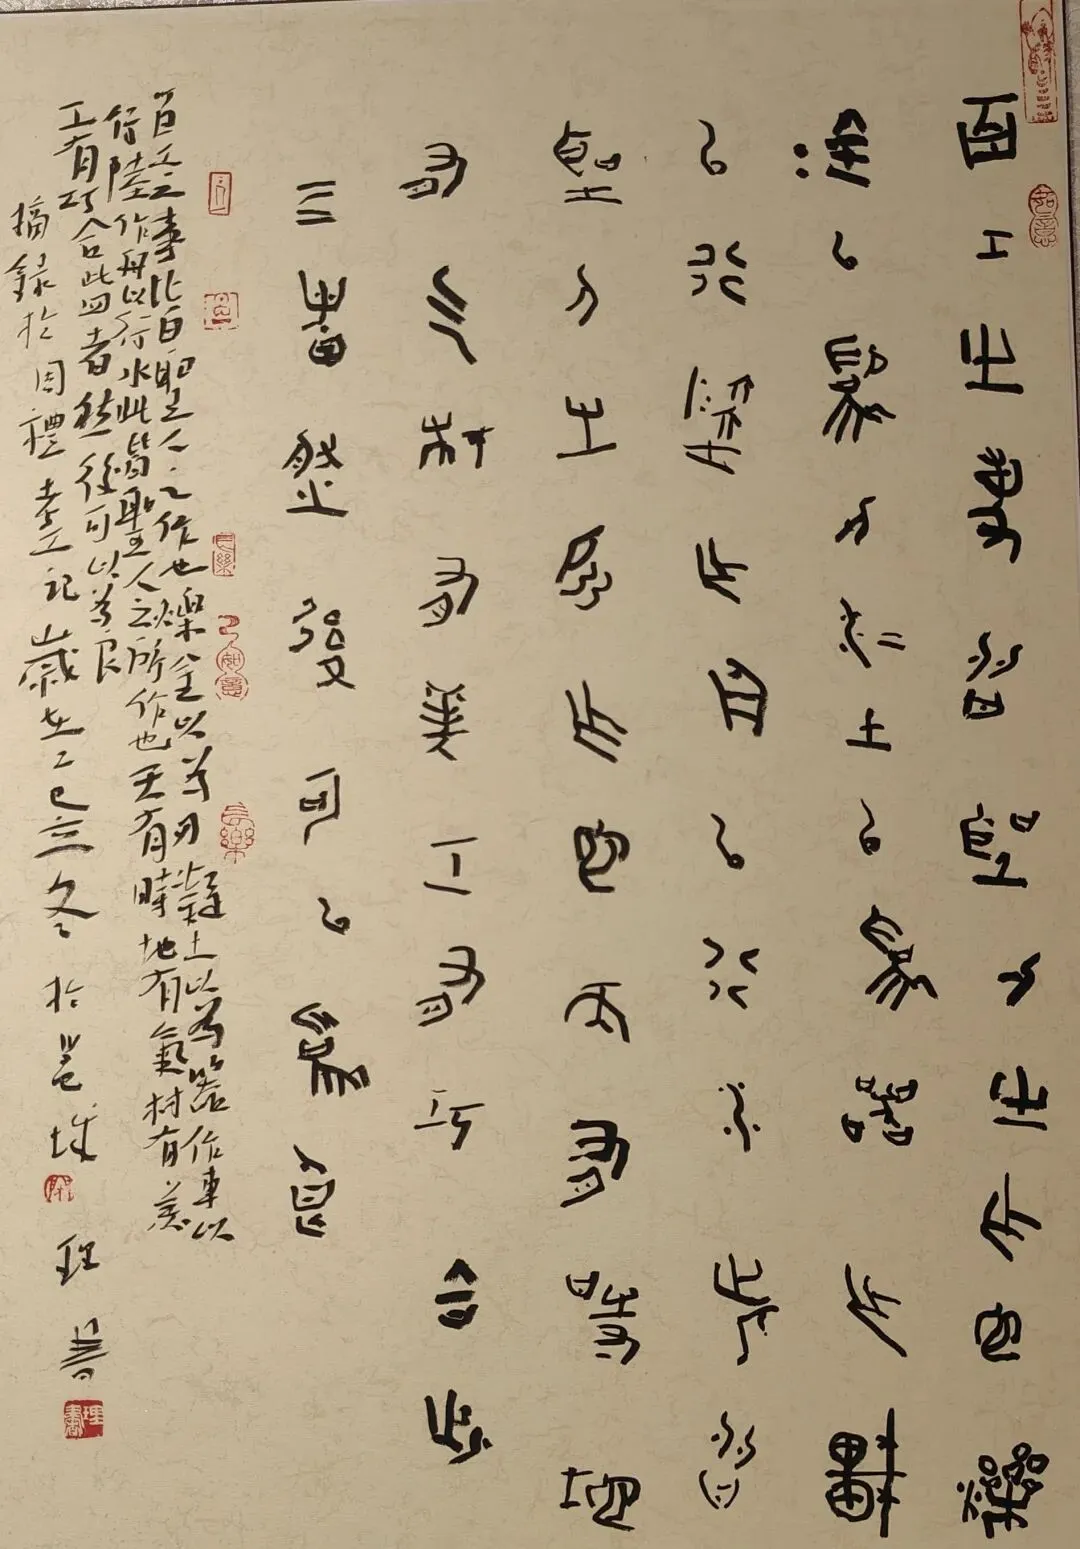 百工之事皆聖人之作也爍
金以為刃凝土以為器作車
以行陸作舟以行水此皆
聖人之所作也天有時地
有氣材有美工有巧合此
四者然後可以為良
百工之事皆聖人之作也爍金以為刃凝土以為器作車以
行陸作舟以行水此皆聖人之所作也天有時地有氣材有美
工有巧合此四者然後可以為良
摘錄於周禮考工記歲在乙巳立冬於邕城 理晉
如意
長樂
如意
長樂